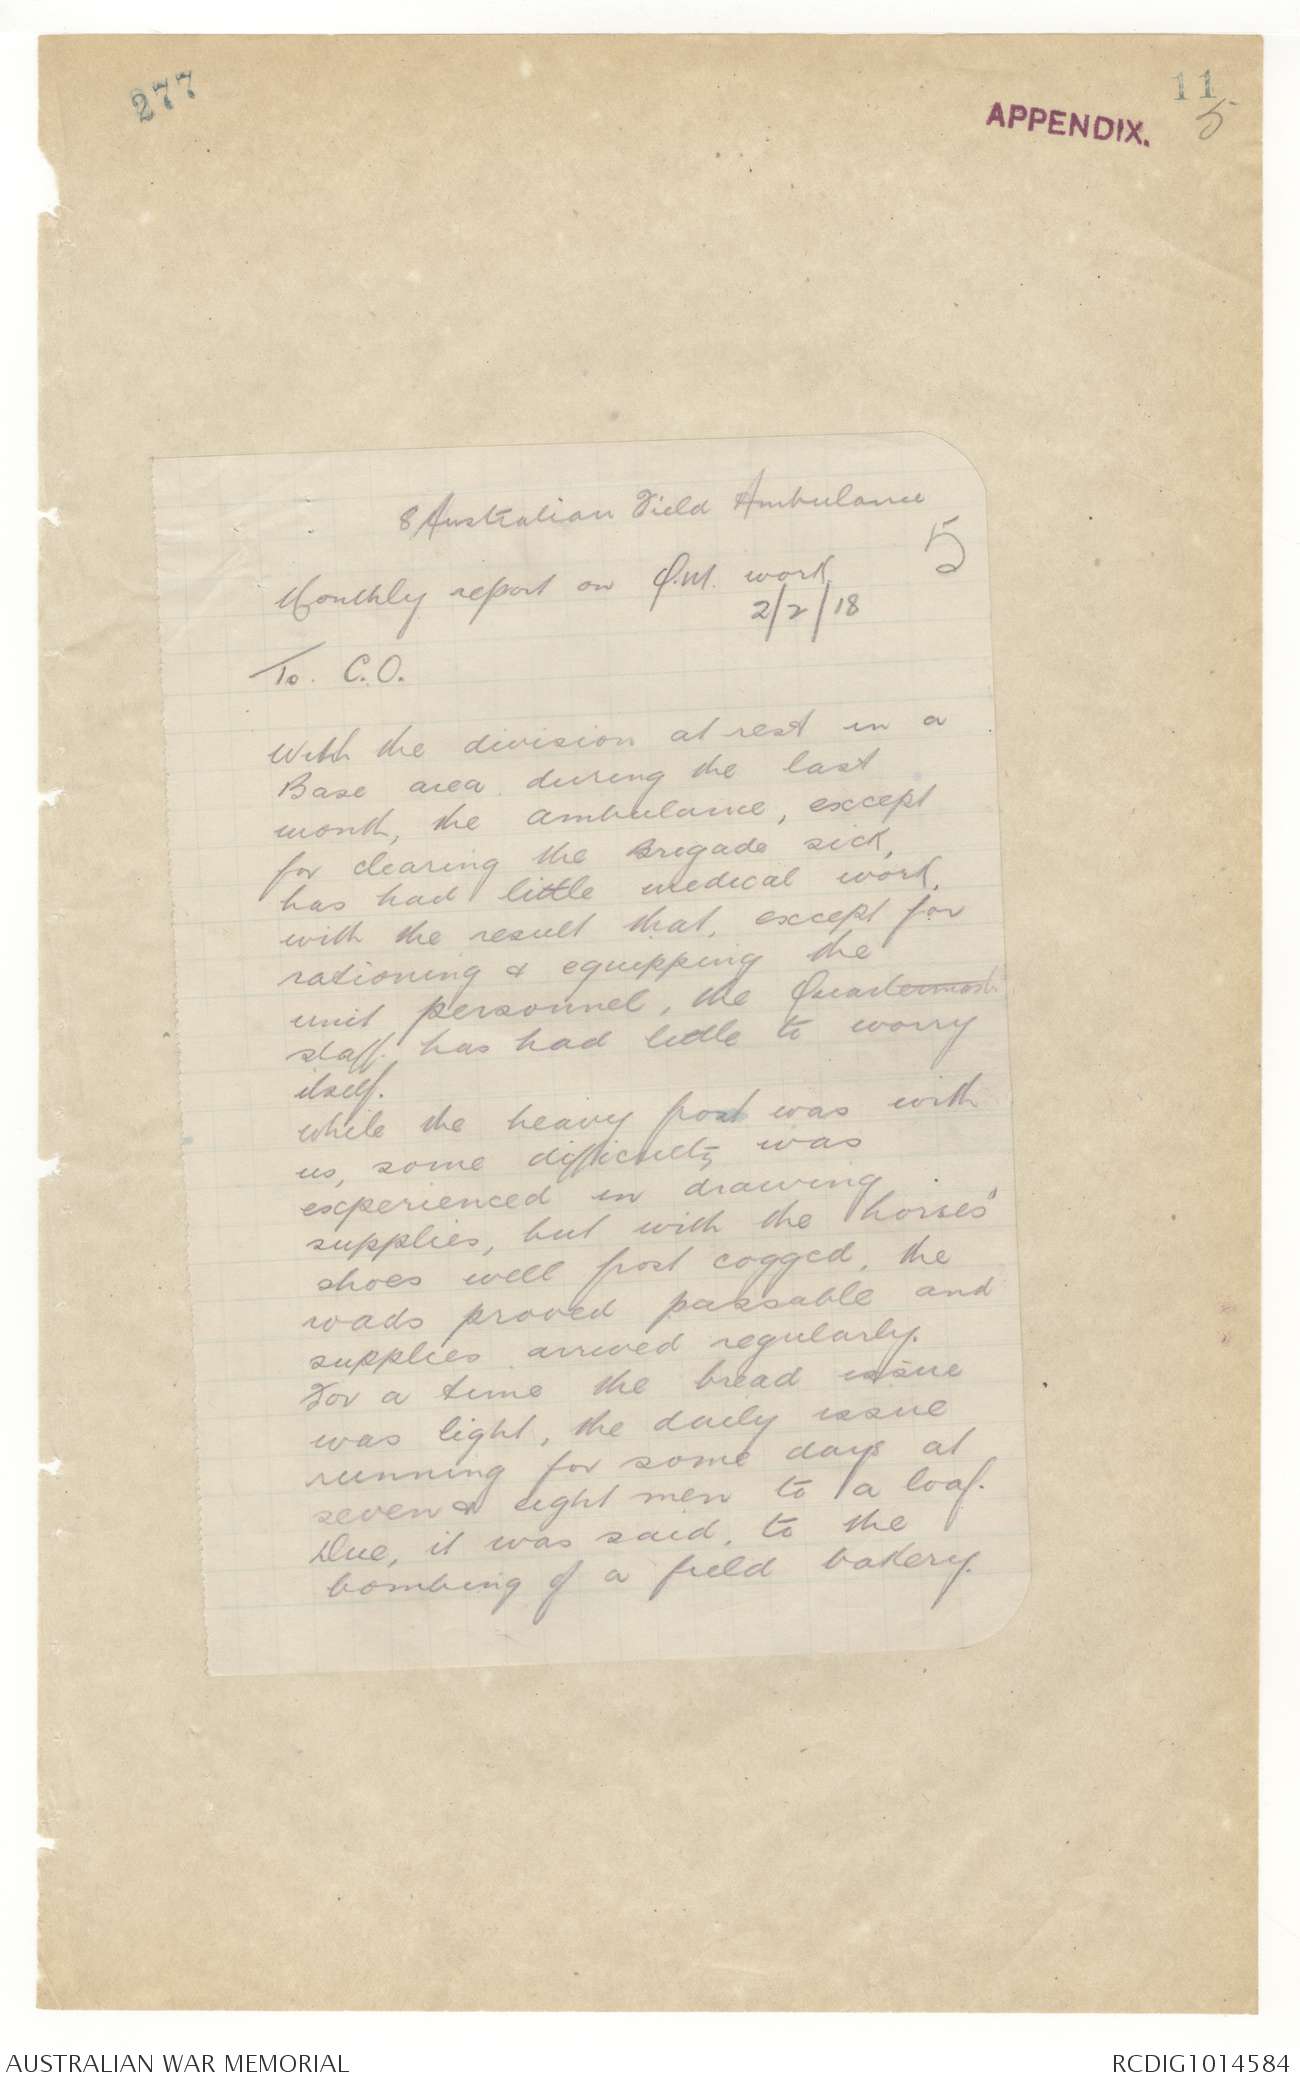 277
11
APPENDIX. 5
8 Australian Field Ambulance
5
Monthly report on Q.M. work
2/2/18
To. C.O.
With the division at rest in a
Base area during the last
month, the ambulance, except
for clearing the Brigade sick,
has had little medical work,
with the result that, except for
rationing & equipping the
unit personnel, the Quartermast
staff has had little to worry
itself.
While the heavy frost was with
us, some difficulty was
experienced in drawing
supplies, but with the horses'
shoes well frost cogged, the
roads proved passable and
supplies arrived regularly.
For a time the bread issue
was light, the daily issue
running for some days at
seven & eight men to a loaf.
Due, it was said, to the
bombing of a field bakery.
AUSTRALIAN WAR MEMORIAL
RCDIG1014584